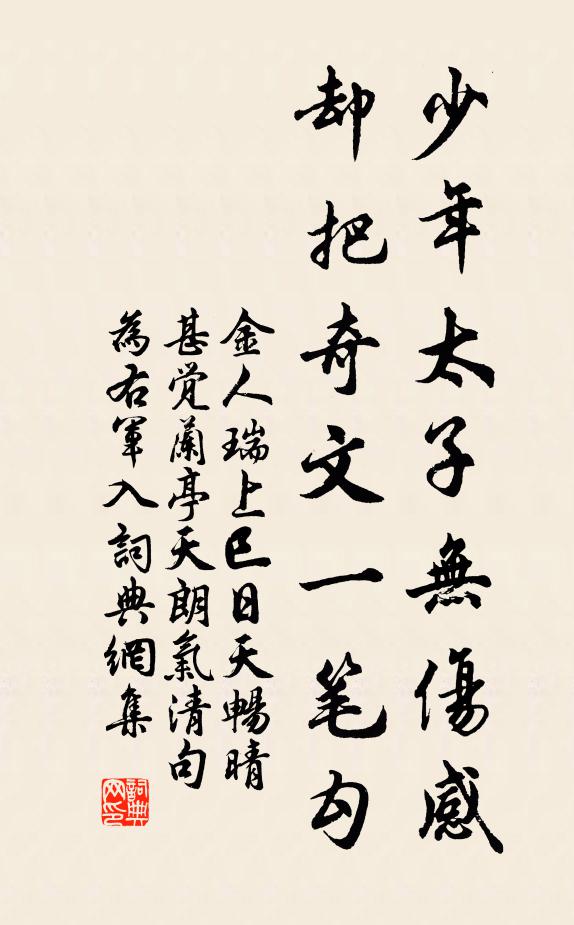 少年太子無傷感
却把奇文一笔勾
金人瑞上巳日天暢晴
甚觉蘭亭天朗氣清句
為右軍入詞典網集
詞典网印